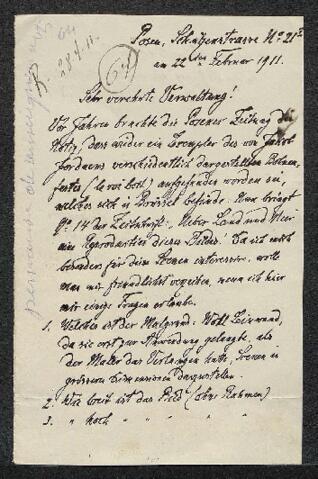 Posen, Schützenstrasse No 21 I
am 22ten Februar 1911.
64
28.4.11.
Sehr verehrte Verwaltung!
Vor Jahren brachte die Posener Zeitung die
Notiz, dass wieder ein Exemplar des von Jakob
Jordaens verschiedentlich dargestellten Bohnen-
festes (le roi boit) aufgefunden worden sei,
welches sich in Brüssel befinde. Nun bringt
No. 14 der Zeitschrift: "Ueber Land und Meer"
eine Reproduktion dieses Bildes. Da ich mich
besonders für diese Ikonen interessire, wolle
man mir freundlichst verzeihen, wenn ich hier
mir einige Fragen erlaube.
1. Welches ist der Malgrund: Wohl Leinwand,
da sie dort zur Anwendung gelangte, als
der Maler das Verlangen hatte, Ikonen in
grösseren Dimensionen darzustellen
2. Wie breit ist das Bild (ohne Rahmen)
3. " hoch " " " " "